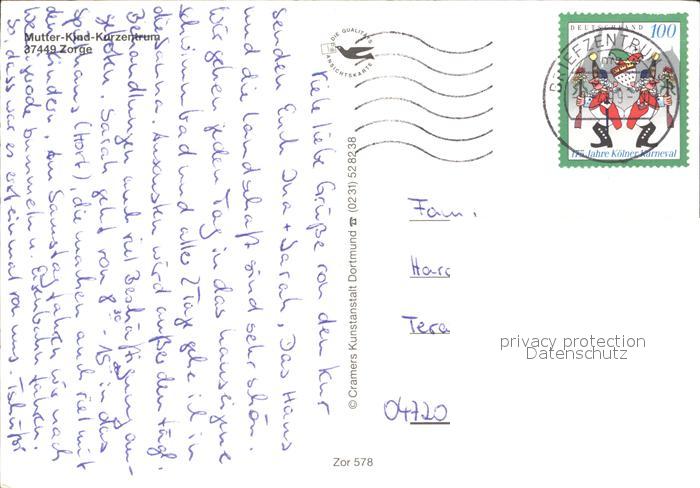 Mutter-Kind-Kurzentrum
37449 Zorge
DIE QUALITÄTS
ANSICHTSKARTE
DEUTSCHLAND 100
175 Jahre Kölner Karneval
BRIEFZENTRUM
Viele liebe Grüße von der Kur
senden Euch Ina + Sarah, Das Haus
und die Landschaft sind sehr schön.
Wir gehen jeden Tag in das hauseigene
Schwimmbad und alle 2 Tage gehe ich in
die Sauna. Ansonsten wird außer den tägl.
Behandlungen auch viel Beschäftigung an-
geboten. Sarah geht von 8³⁰ - 15⁰⁰ in das
(Hort), die machen auch viel mit
den Kindern. Am Samstag fahren wir nach
bummeln u. fahren.
So, das war es erst einmal von uns. Tschüß
© Cramers Kunstanstalt Dortmund ☎ (02 31) 528238
Fam.
Harr
Tera
04720
privacy protection
Datenschutz
Zor 578